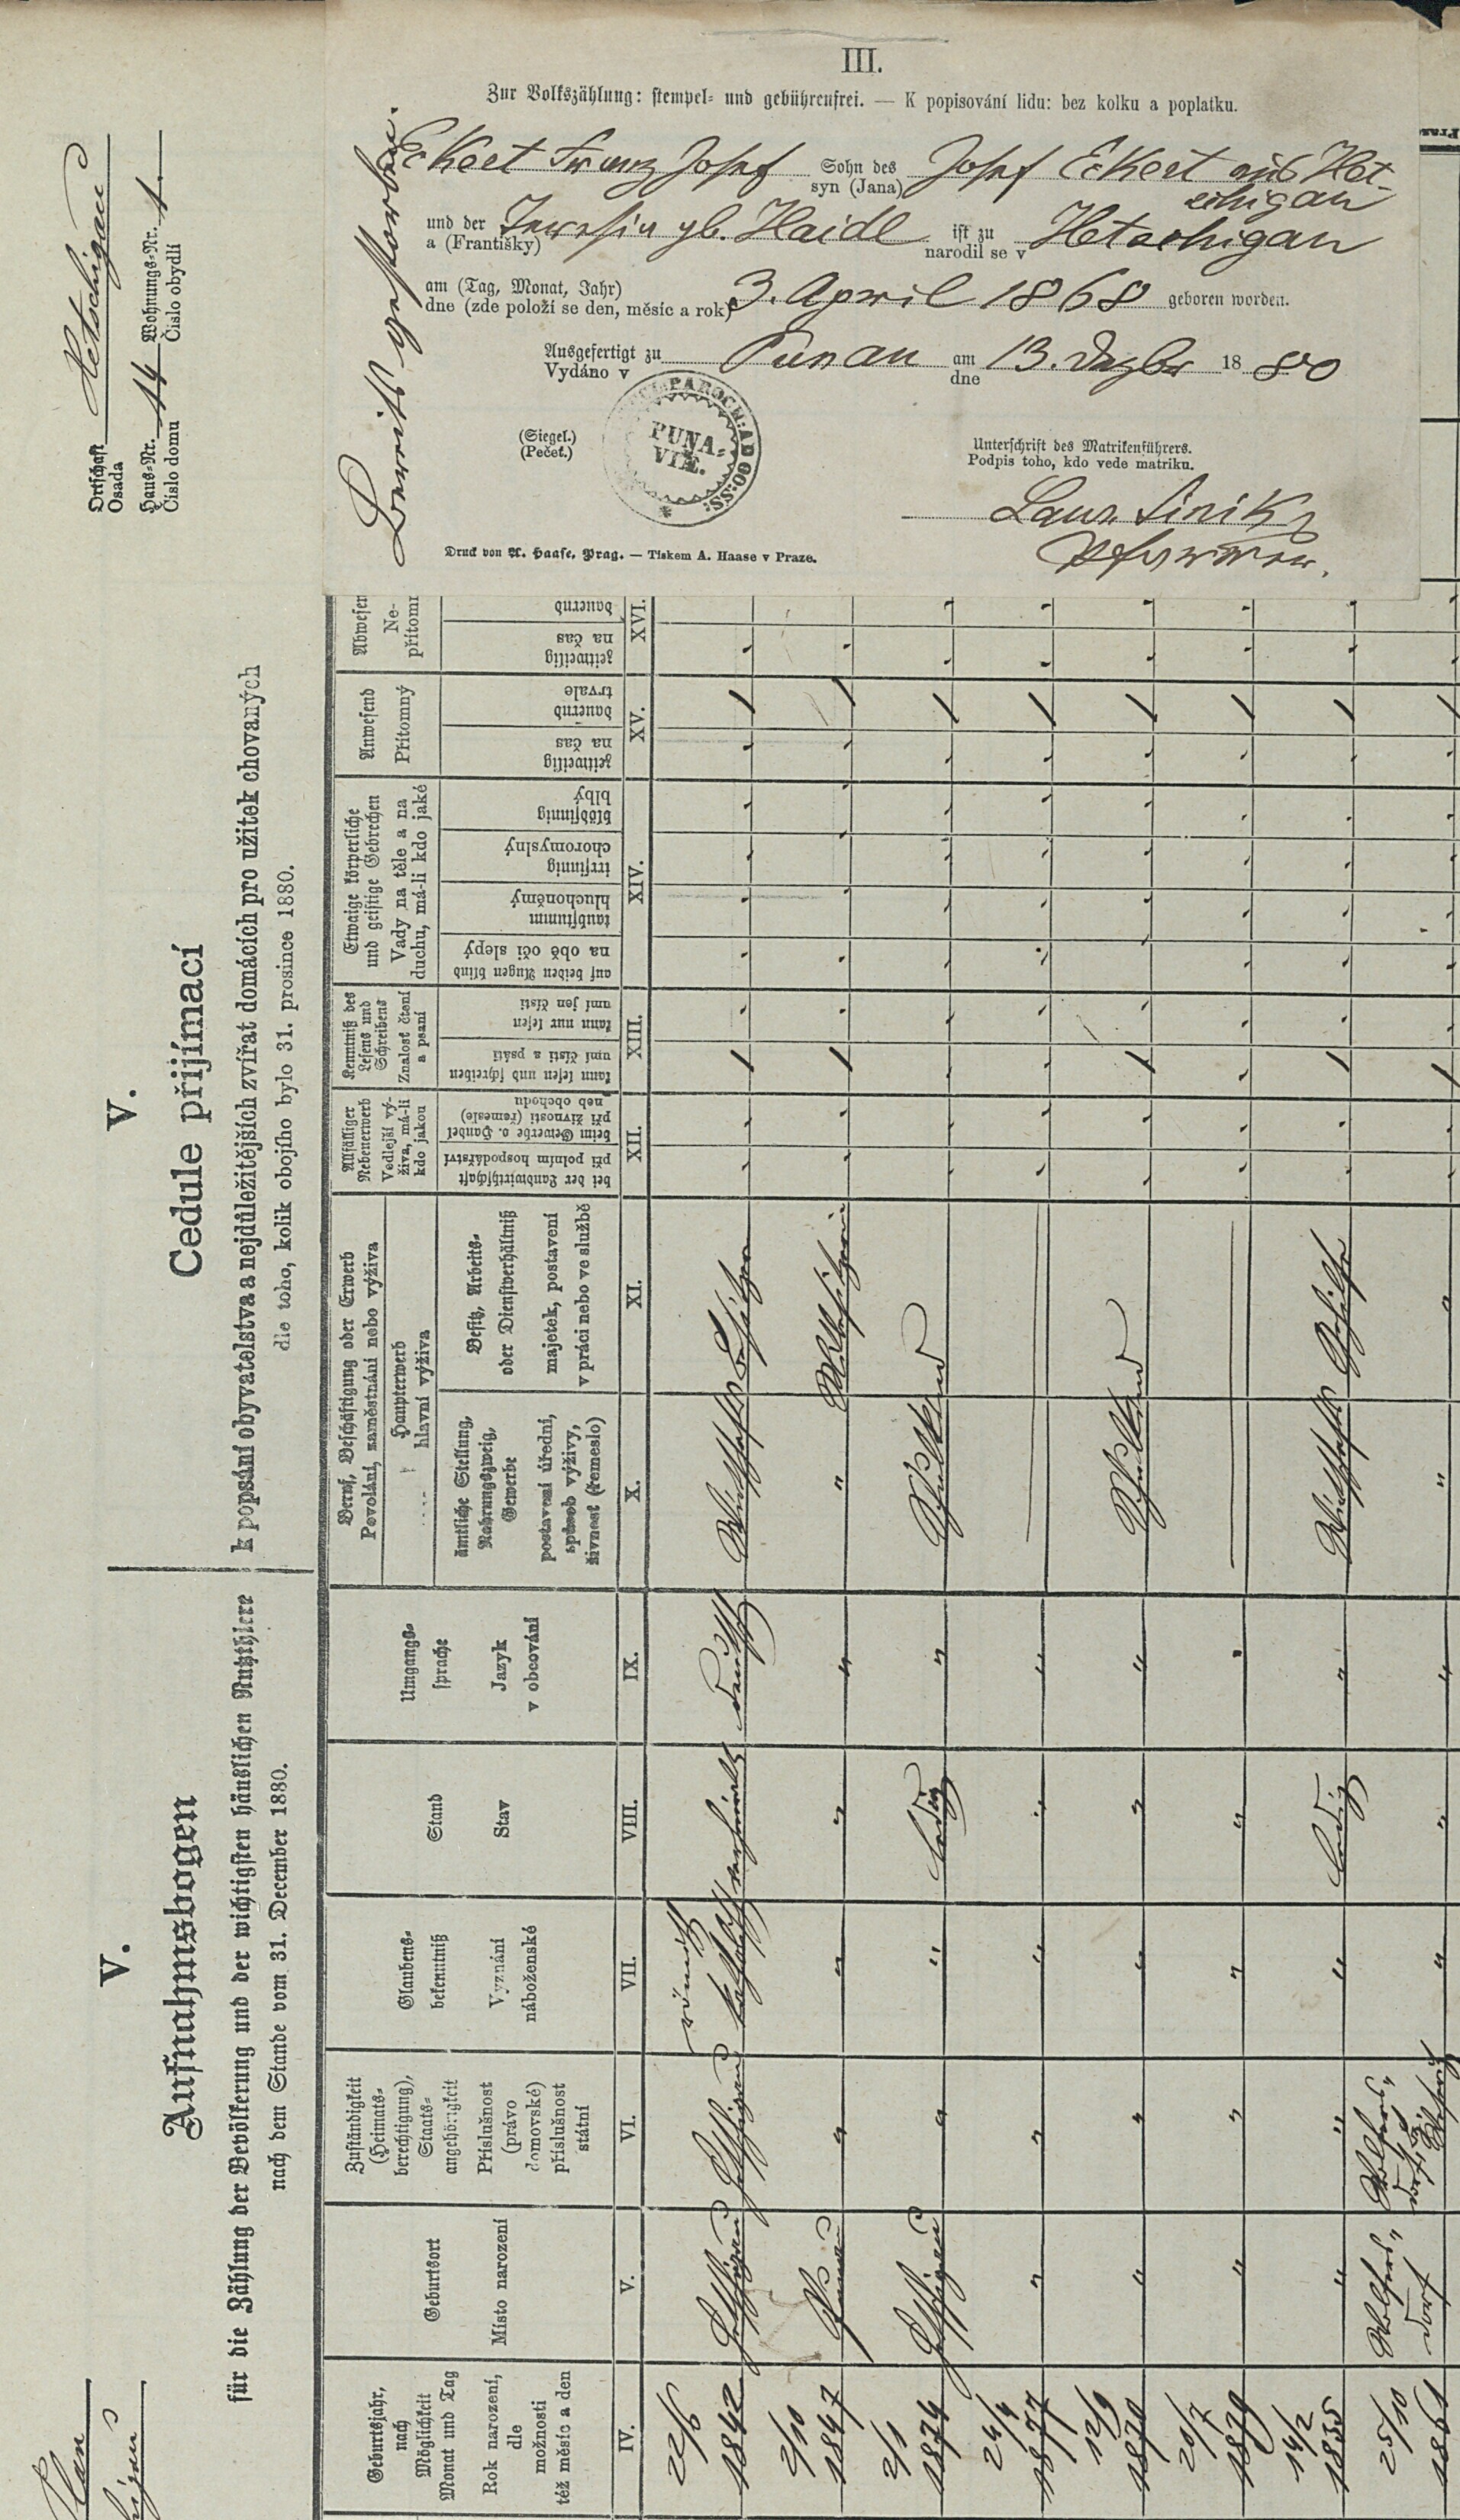 III.
Zur Volkszählung: stempel- und gebührenfrei. — K popisování lidu: bez kolku a poplatku.
Eckert Franz Josef Sohn des Josef Eckert aus Het-
syn (Jana) schigau
und der Theresia geb. Haidl ist zu Hetschigau
a (Františky) narodil se v
am (Tag, Monat, Jahr) 3. April 1868 geboren worden.
dne (zde položí se den, měsíc a rok)
Ausgefertigt zu Punau am 13. Dezbr 1880
Vydáno v dne
(Siegel.)
(Pečeť.)
PUNA-
VIÆ.
Unterschrift des Matrikenführers.
Podpis toho, kdo vede matriku.
Druck von A. Haase, Prag. — Tiskem A. Haase v Praze.
Bereits gestorben.
Ortschaft Hetschigau
Osada
Haus-Nr. 14 Wohnungs-Nr. 1.
Číslo domu Číslo obydlí
V.
Aufnahmsbogen
für die Zählung der Bevölkerung und der wichtigsten häuslichen Nutzthiere
nach dem Stande vom 31. December 1880.
V.
Cedule přijímací
k popsání obyvatelstva a nejdůležitějších zvířat domácích pro užitek chovaných
dle toho, kolik obojího bylo 31. prosince 1880.
Plan
Geburtsjahr,
nach
Möglichkeit
Monat und Tag
Rok narození,
dle
možnosti
též měsíc a den
IV.
Geburtsort
Místo narození
V.
Zuständigkeit
(Heimats-
berechtigung),
Staats-
angehörigkeit
Příslušnost
(právo
domovské)
příslušnost
státní
VI.
Glaubens-
bekenntniß
Vyznání
náboženské
VII.
Stand
Stav
VIII.
Umgangs-
sprache
Jazyk
v obcování
IX.
Beruf, Beschäftigung oder Erwerb
Povolání, zaměstnání nebo výživa
Haupterwerb
hlavní výživa
ämtliche Stellung,
Nahrungszweig,
Gewerbe
postavení úřední,
spůsob výživy,
živnost (řemeslo)
X.
Besitz, Arbeits-
oder Dienstverhältniß
majetek, postavení
v práci nebo ve službě
XI.
Allfälliger
Nebenerwerb
Vedlejší vý-
živa, má-li
kdo jakou
bei der Landwirthschaft
při polním hospodářství
beim Gewerbe o. Handel
při živnosti (řemesle)
neb obchodu
XII.
Kenntniß des
Lesens und
Schreibens
Znalost čtení
a psaní
kann lesen und schreiben
umí čísti a psáti
kann nur lesen
umí jen čísti
XIII.
Etwaige körperliche
und geistige Gebrechen
Vady na těle a na
duchu, má-li kdo jaké
auf beiden Augen blind
na obě oči slepý
taubstumm
hluchoněmý
irrsinnig
choromyslný
blödsinnig
blbý
XIV.
Anwesend
Přítomný
zeitweilig
na čas
dauernd
trvale
XV.
Abwesen
Ne-
přítomn
zeitweilig
na čas
dauernd
XVI.
22/6 1842 Hetschigau Hetschigau römisch katholisch verheirath deutsch Wirthschafts Besitzer 1 1
2/10 1847 Punau " " " " " Mitbesitzerin 1 1
2/1 1874 Hetschigau " " ledig " Schulkind 1
24/4 1877 " " " " " 1
12/9 1870 " " " " " Schulkind 1 1
20/7 1879 " " " " " 1
14/2 1835 " " " ledig " Wirthschafts Gehilfe 1 1
25/10 1861 " " " " " 1 1